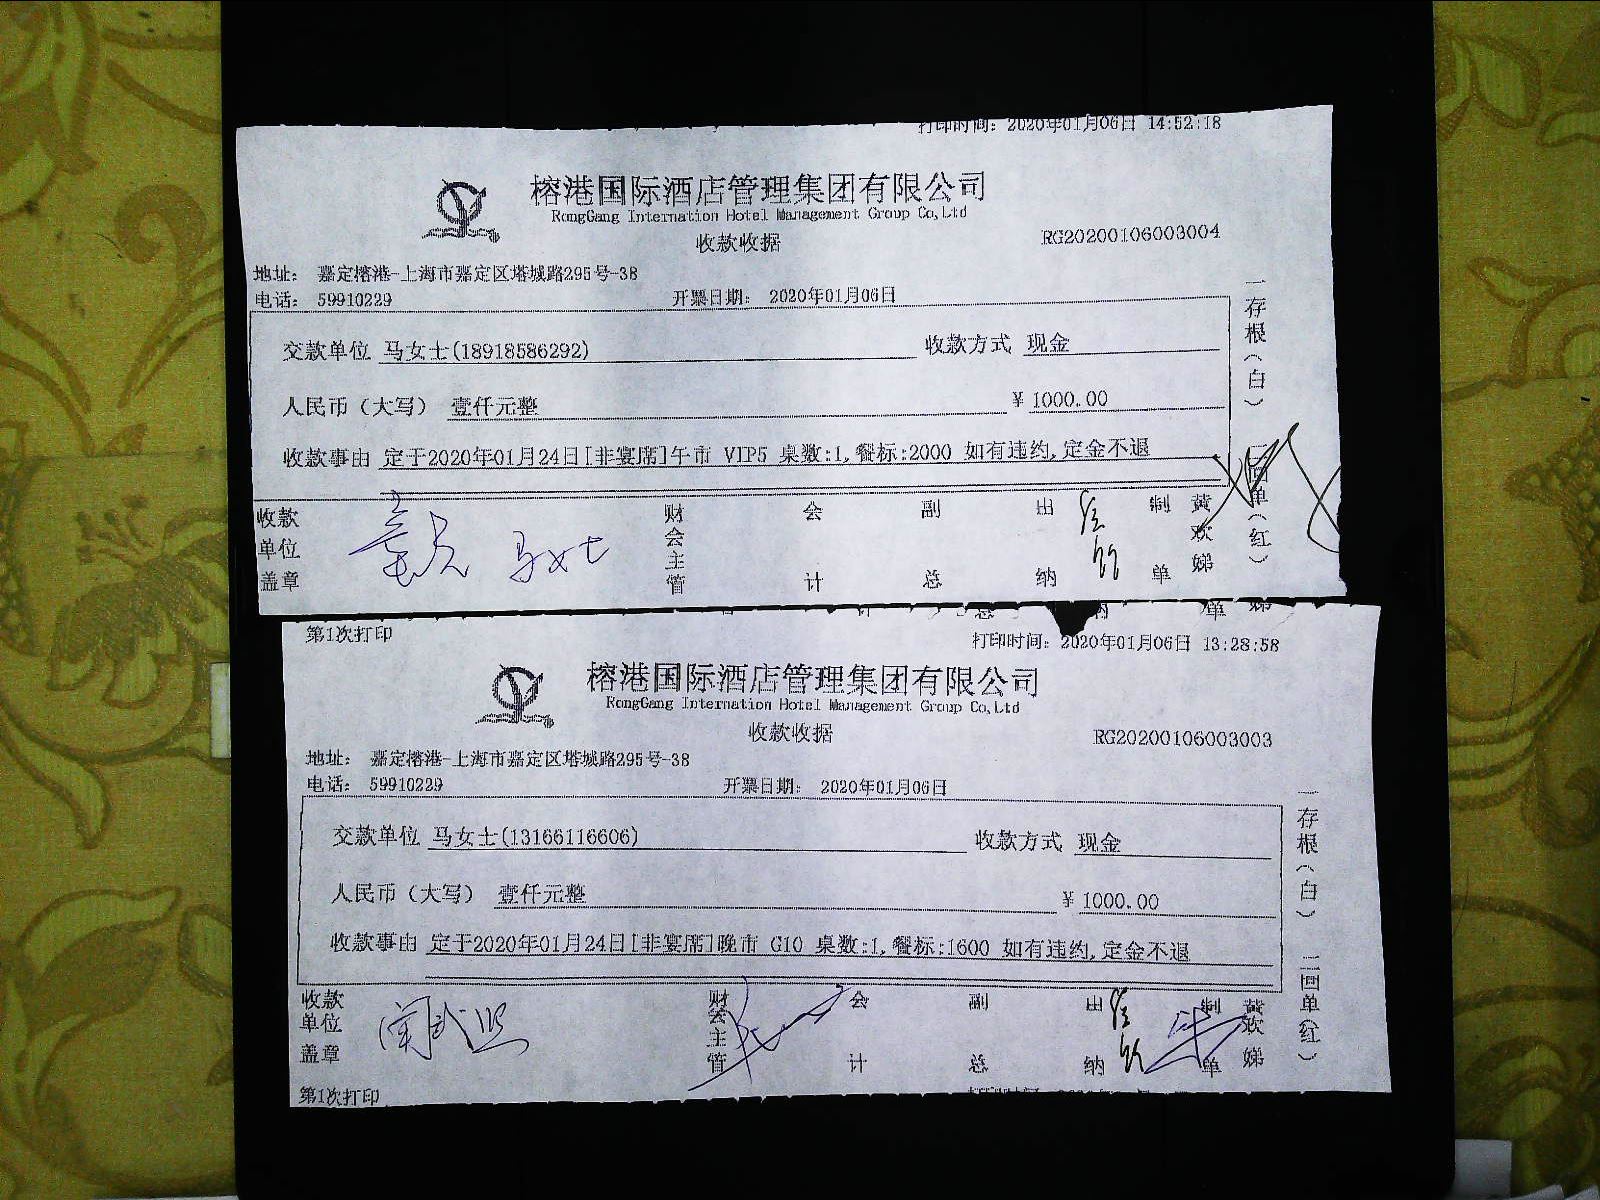 打印时间： 2020年01月06日 14:52:18
榕港国际酒店管理集团有限公司
RongGang Internation Hotel Management Group Co,Ltd
收款收据
RG20200106003004
地址： 嘉定榕港-上海市嘉定区塔城路295号-38
电话： 59910229
开票日期： 2020年01月06日
交款单位 马女士(18918586292)
收款方式 现金
人民币（大写） 壹仟元整
￥ 1000.00
收款事由 定于2020年01月24日[非宴席]午市 VIP5 桌数:1,餐标:2000 如有违约,定金不退
一存根（白）
二回单（红）
收款单位盖章
马女士
财会主管
会计
副总
出纳
制单
黄欢娣
第1次打印
打印时间： 2020年01月06日 13:28:58
榕港国际酒店管理集团有限公司
RongGang Internation Hotel Management Group Co,Ltd
收款收据
RG20200106003003
地址： 嘉定榕港-上海市嘉定区塔城路295号-38
电话： 59910229
开票日期： 2020年01月06日
交款单位 马女士(13166116606)
收款方式 现金
人民币（大写） 壹仟元整
￥ 1000.00
收款事由 定于2020年01月24日[非宴席]晚市 G10 桌数:1,餐标:1600 如有违约,定金不退
一存根（白）
二回单（红）
收款单位盖章
财会主管
会计
副总
出纳
制单
黄欢娣
第1次打印